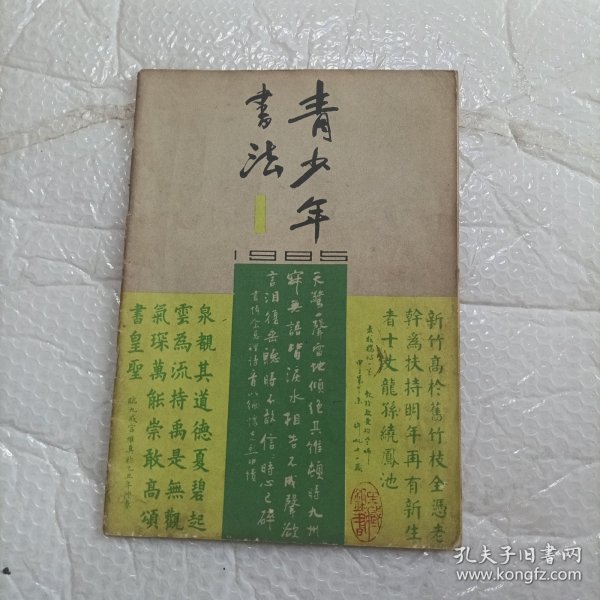 青少年
书法
1
1985
新竹高於舊竹枝全憑老
幹為扶持明年再有新生
者十丈龍孫繞鳳池
天驚一聲雷地傾絕其維頓時九州
寂無語皆淚水相告不成聲欲
言泪復垂聽時不敢信時心已碎
泉觀其道德夏碧起
雲為流持禹是無觀
氣琛萬能崇敢高頌
書皇聖
孔夫子旧书网
www.kongfz.com